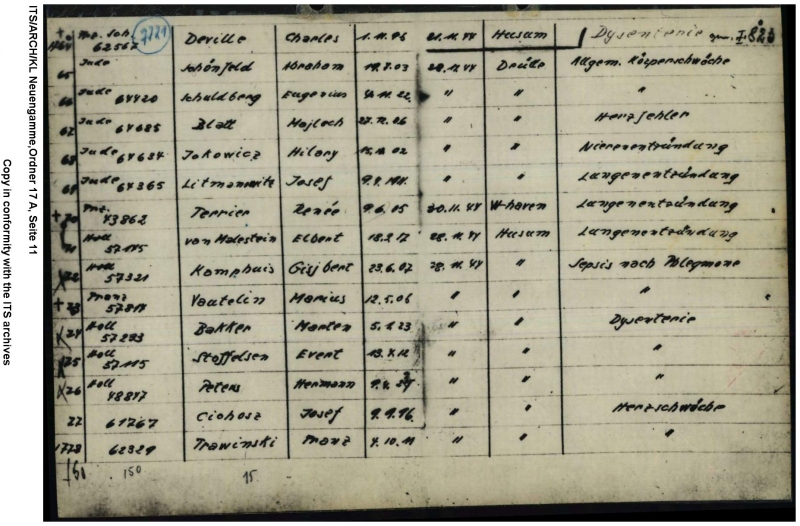 ITS/ARCH/KL Neuengamme, Ordner 17 A, Seite 11
Copy in conformity with the ITS archives
62567 Deville Charles 1.11.96 21.11.44 Husum Dysenterie
65 Jude Schönfeld Abraham 28.11.44 Drütte Allgem. Körperschwäche
66 Jude 64420 Schuldberg Eugenius " " "
67 Jude 64685 Blatt Majloch 27.12.06 " " Herzfehler
68 Jude 64634 Jakowicz Hilary 15.12.02 " " Nierenentzündung
69 Jude 64365 Josef " " Lungenentzündung
70 43862 Terrier Renée 9.6.05 30.11.44 W-haven Lungenentzündung
71 Holl 57145 van Halestein Elbert 18.2.17 28.11.44 Husum Lungenentzündung
72 Holl 57321 Kamphuis Gijbert 23.6.07 28.11.44 " Sepsis nach Phlegmone
73 Franz Vautelin Marius 12.5.06 " " "
74 Holl 57293 Bakker Marten 5.1.23 " " Dysenterie
75 Holl 57115 Stoffelsen Evert 13.4.12 " " "
76 Holl 48847 Peters Hermann " " "
77 61767 Ciohosz Josef 9.9.96 " " Herzschwäche
1778 62329 Trawinski Franz 4.10.11 " " "
150 15